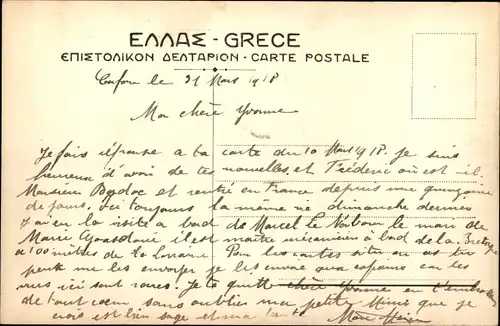 ΕΛΛΑΣ - GRECE
ΕΠΙΣΤΟΛΙΚΟΝ ΔΕΛΤΑΡΙΟΝ - CARTE POSTALE
Corfou le 31 Mars 1918
Ma chère Yvonne
Je fais réponse a ta carte du 10 Mars 1918. Je suis
heureux d'avoir de tes nouvelles, et Frédéric où est-il.
Monsieur et rentré en France depuis une quinzaine
de jours. Ici toujours la même vie dimanche dernier
J'ai eu la visite a bord de Marcel Le le mari de
Marie il est maître mécanicien a bord de la Bretagne
a 100 mètres de la Lorraine. Pour les cartes si tu as tu
peux me les envoyer je les aux copains car les
vues ici sont rares. Je te quitte chère Yvonne en t'embrassant
de tout coeur sans oublier ma petite Mimie que je
crois est bien sage et ma tante